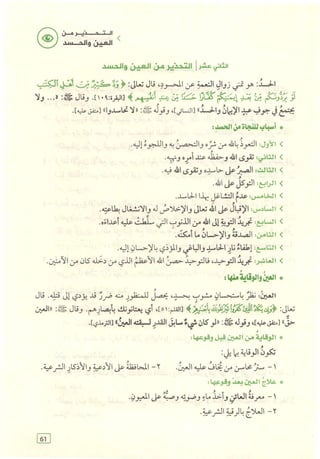 التحذير من
العين والحسد
ثاني عشر | التحذير من العين والحسد
الحسد: هو تمني زوال النعمة عن المحسود، قال تعالى: ﴿وَدَّ كَثِيرٌ مِّنْ أَهْلِ الْكِتَابِ
لَوْ يَرُدُّونَكُم مِّن بَعْدِ إِيمَانِكُمْ كُفَّارًا حَسَدًا مِّنْ عِندِ أَنفُسِهِم﴾ [البقرة: ١٠٩]، وقال ﷺ: «... ولا
يجتمع في جوف عبد الإيمان والحسد» [النسائي]، وقوله ﷺ: «لا تحاسدوا» [متفق عليه].
• أسباب للنجاة من الحسد:
< الأول: التعوذ بالله من شره والتحصن به واللجوء إليه.
< الثاني: تقوى الله وحفظه عند أمره ونهيه.
< الثالث: الصبر على حاسده وتقوى الله فيه.
< الرابع: التوكل على الله.
< الخامس: عدم انشغاله بهذا الحاسد.
< السادس: الإقبال على الله تعالى والإخلاص له والانشغال بطاعته.
< السابع: تجريد التوبة إلى الله من الذنوب التي سلطت عليه أعداءه.
< الثامن: الصدقة والإحسان ما أمكنه.
< التاسع: إطفاء نار الحاسد والباغي والمؤذي بالإحسان إليه.
< العاشر: تجريد التوحيد، فالتوحيد حصن الله الأعظم الذي من دخله كان من الآمنين.
• العين والوقاية منها:
تعالى: ﴿وَإِن يَكَادُ الَّذِينَ كَفَرُوا لَيُزْلِقُونَكَ بِأَبْصَارِهِمْ﴾ [القلم: ٥١]، أي يعتانونك بأبصارهم. وقال ﷺ: «العين
حق» [متفق عليه]، وقوله ﷺ: «لو كان شيء سابق القدر لسبقته العين» [الترمذي].
• الوقاية من العين قبل وقوعها:
تكون الوقاية بما يلي:
١- ستر محاسن من يخاف عليه العين. ٢- المحافظة على الأدعية والأذكار الشرعية.
• علاج العين بعد وقوعها:
١- معرفة العائن وأخذ ماء وضوئه وصبه على المعيون.
٢- العلاج بالرقية الشرعية.
61